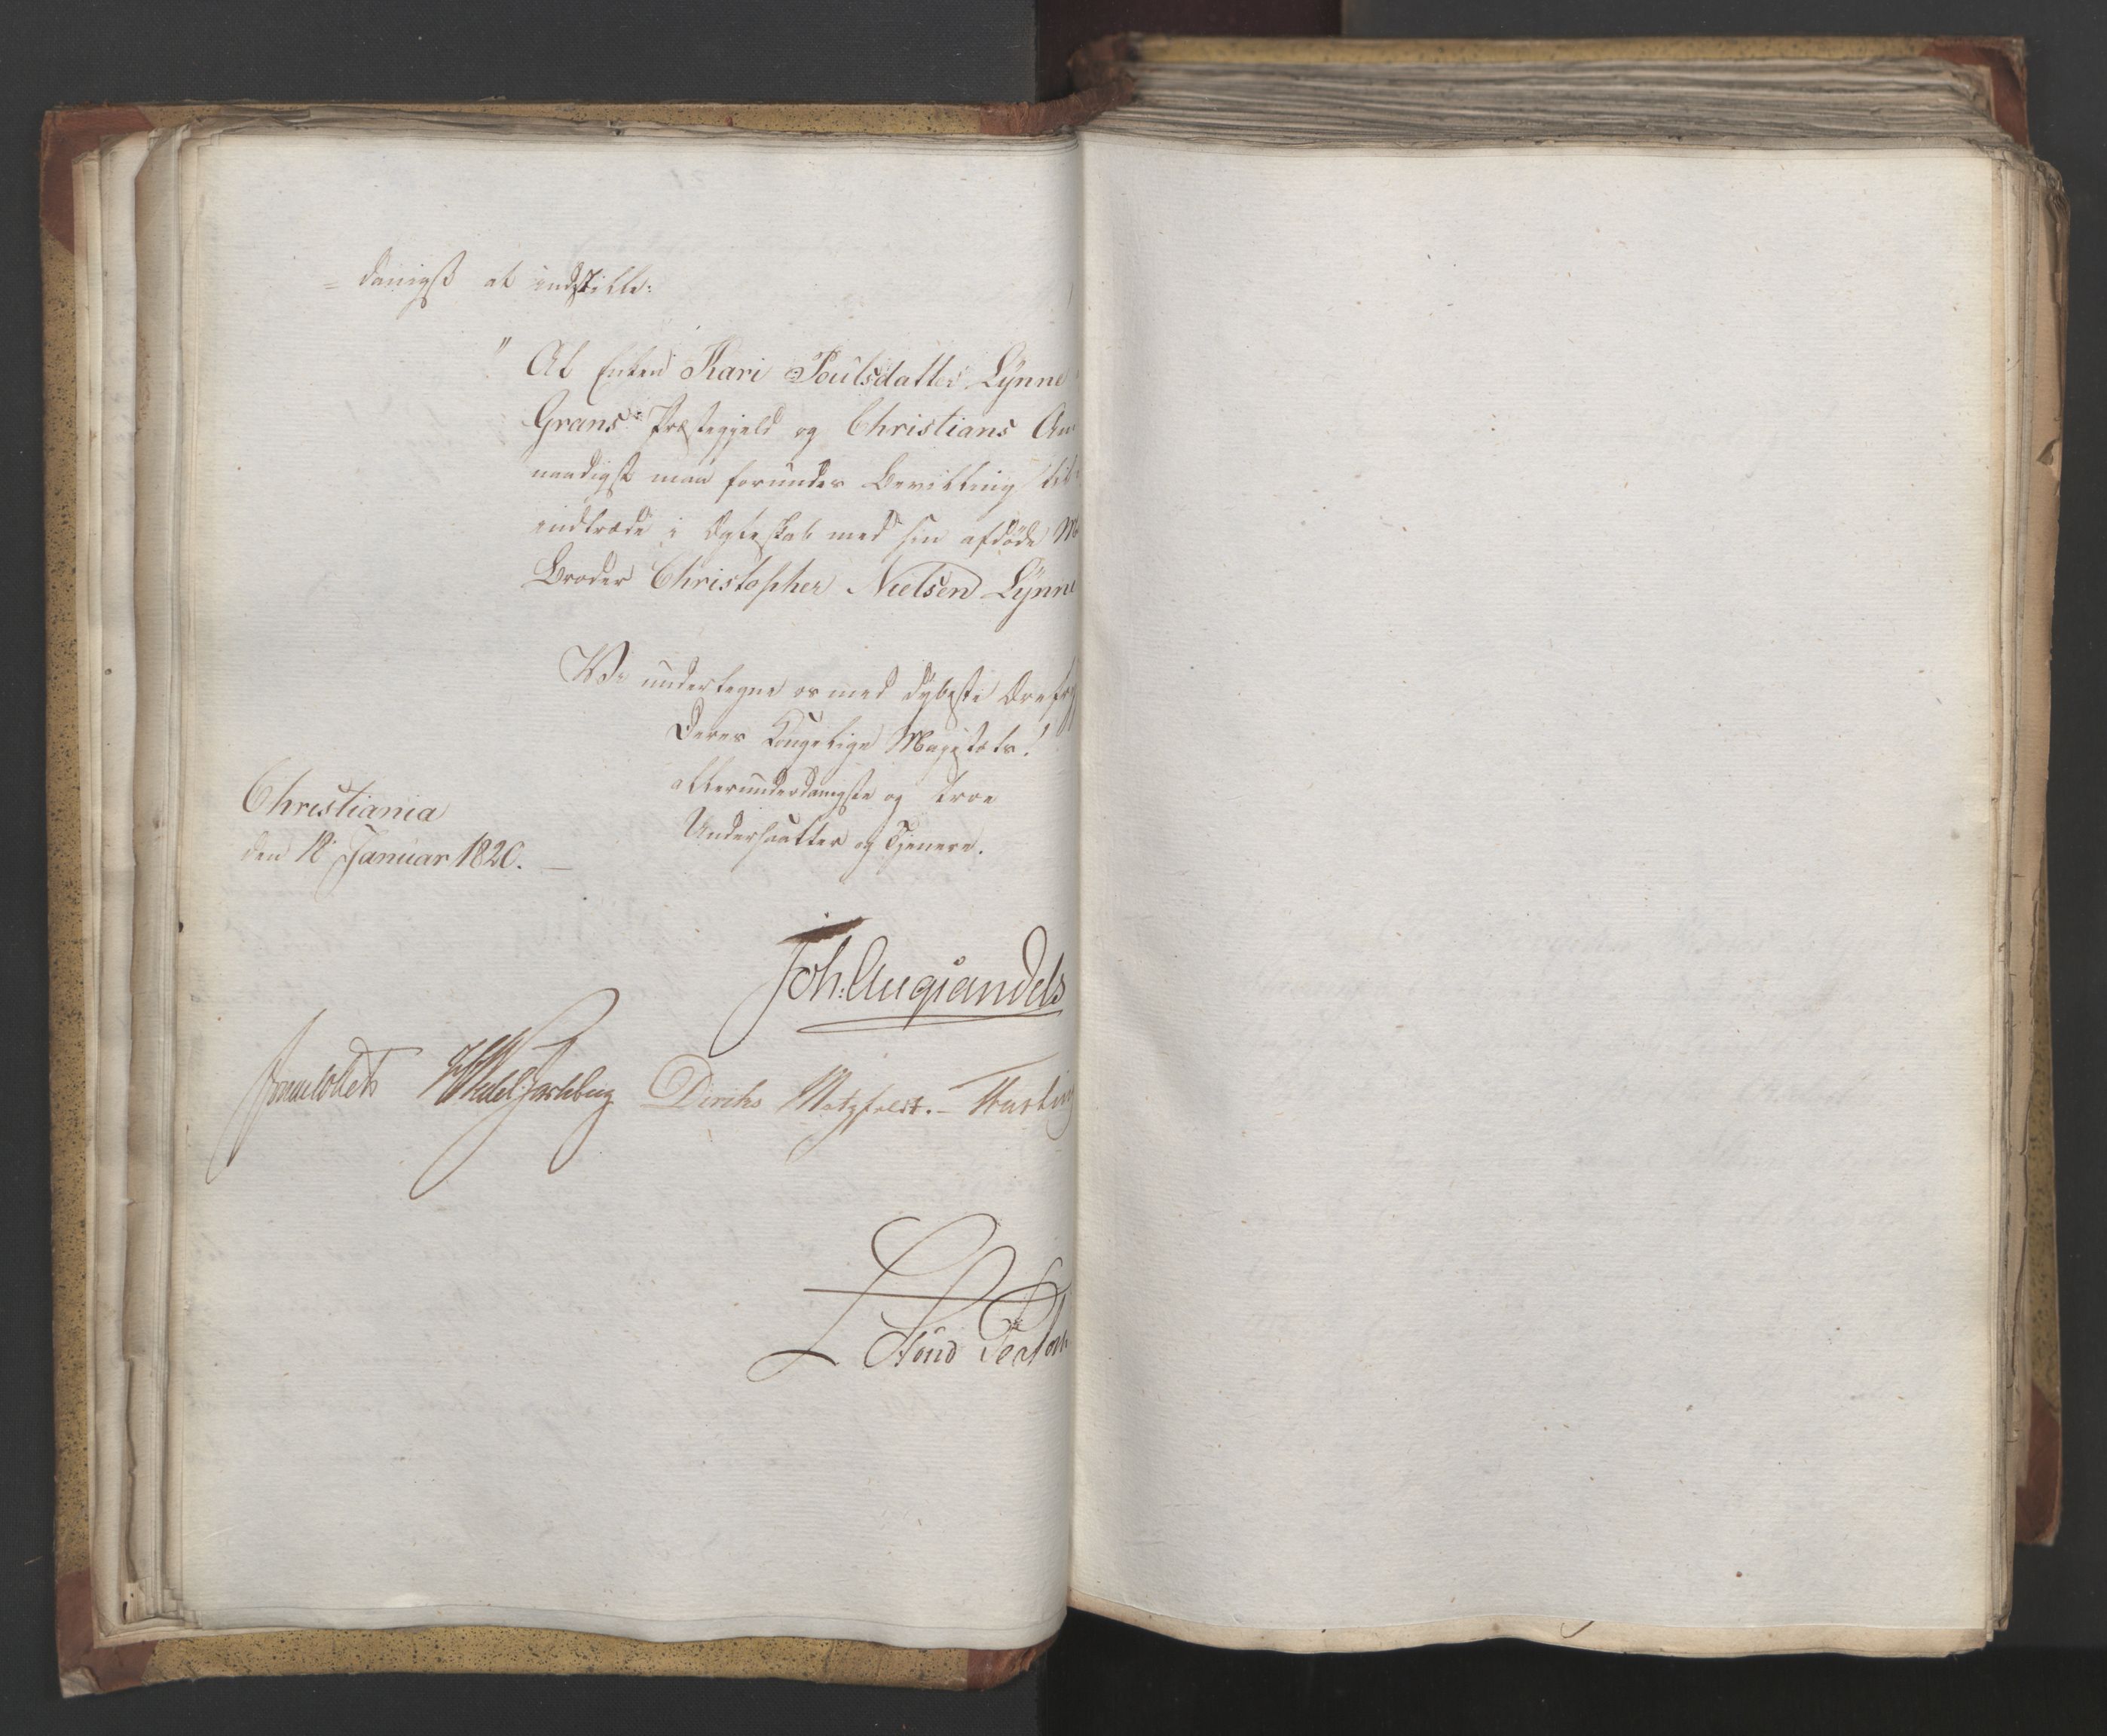 = danigst at indstille:
" At Enken Kari Poulsdatter Lynne
Grans Præstegjeld og Christians Am
naadigst maa forundes Bevilling til
indtræde i Ægteskab med sin afdøde M
Broder Christopher Nielsen Lynne
Vi undertegne os med dybeste Ærefry
Deres Kongelige Majestæts!
allerunderdanigste og troe
Undersaatter og Tjenere.
Christiania
den Januar 1820.
Joh: Aug Sandels
Jonas Collett HWedel Jarlsberg Diriks Motzfeldt. -
L